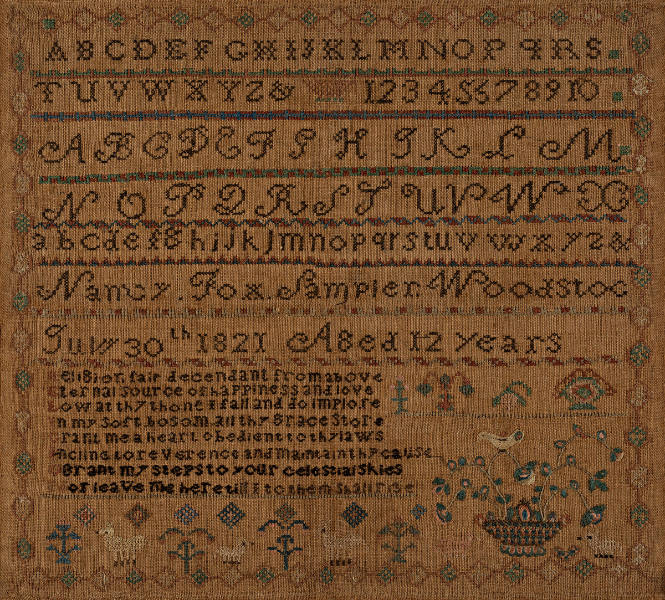 A B C D E F G H I J K L M N O P Q R S
T U V W X Y Z & 1 2 3 4 5 6 7 8 9 10
A B C D E F G H I K L M
N O P Q R S T U V W X
a b c d e f g h i j k l m n o p q r s t u v w x y z &
Nancy . Fox . Sampler . Woodstoc
July 30th 1821 Aged 12 years
Religion fair decendant from above
Eternal source of happiness and love
Low at thy thone I fall and do implore
In my soft bosom all thy Grace Store
Grant me a heart obedient to thy laws
Incline to reverence and maintain thy cause
Grant my steps to your celestial skies
or leave me here till I to them shall rise